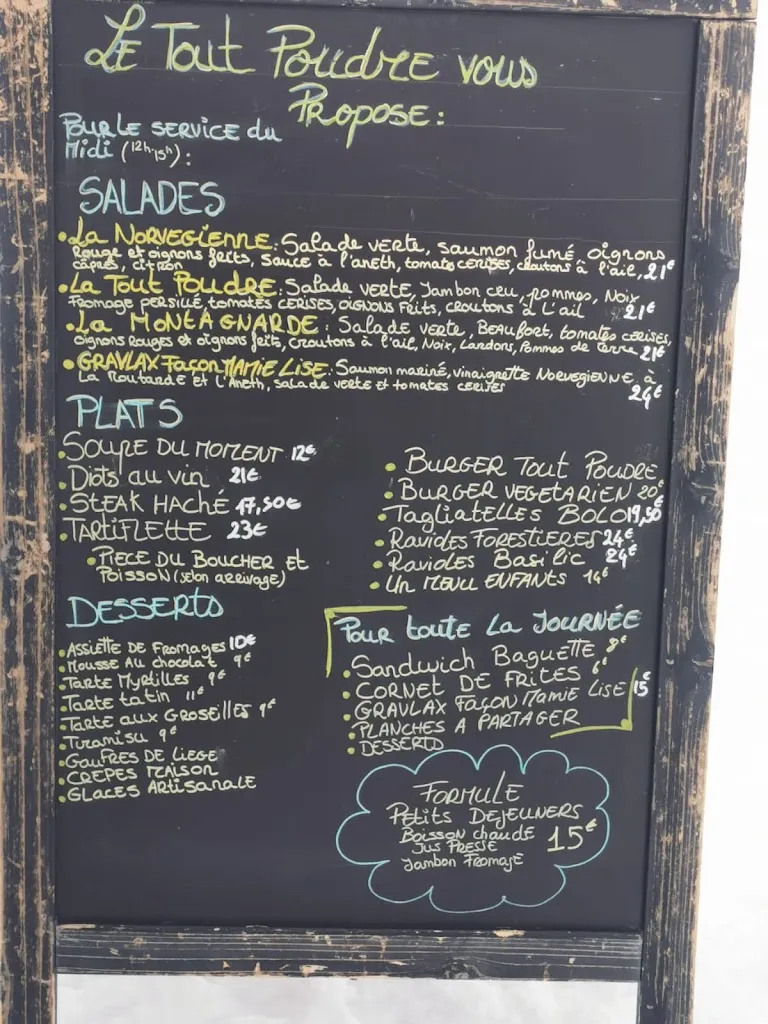 LE Tout Poudre vous
Propose:
Pour le service du
Midi (12h-15h):
SALADES
• La Norvegienne: Salade verte, saumon fumé, oignons
Rouge et oignons frits, sauce à l'aneth, tomates cerises, croutons à l'ail, 21€
câpres, citron
• La Tout Poudre: Salade verte, Jambon cru, pommes, Noix
Fromage persillé, tomates cerises, oignons frits, croutons à l'ail 21€
• La Montagnarde: Salade verte, Beaufort, tomates cerises,
oignons rouges et oignons frits, croutons à l'ail, Noix, Lardons, Pommes de terre 21€
• GRAVLAX Façon Mamie Lise: Saumon mariné, vinaigrette Norvegienne à
La Moutarde et l'Aneth, salade verte et tomates cerises 24€
PLATS
• Soupe du moment 12€
• Diots au vin 21€
• Steak Haché 17,50€
• Tartiflette 23€
• Piece du Boucher et
Poisson (selon arrivage)
• Burger Tout Poudre
• Burger Vegetarien 20€
• Tagliatelles Bolo 19,50€
• Ravioles Forestieres 24€
• Ravioles Basilic 24€
• Un menu enfants 14€
DESSERTS
• Assiette de Fromages 10€
• Mousse Au chocolat 9€
• Tarte Myrtilles 9€
• Tarte tatin 11€
• Tarte aux Groseilles 9€
• Tiramisu 9€
• Gaufres de Liege
• Crepes Maison
• Glaces Artisanale
Pour toute la journée
• Sandwich Baguette 8€
• Cornet de frites 6€
• GRAVLAX Façon Mamie Lise 15€
• Planches a partager
• Desserts
Formule
Petits Dejeuners
Boisson chaude 15€
Jus Presse
Jambon Fromage